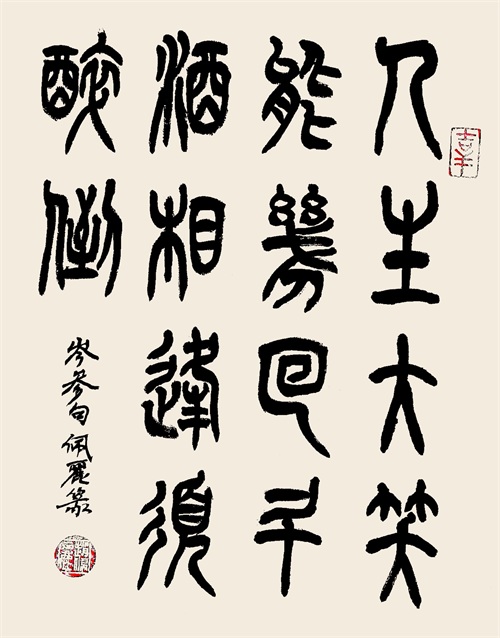 人生大笑
能幾回斗
酒相逢須
醉倒
岑參句佩麗篆